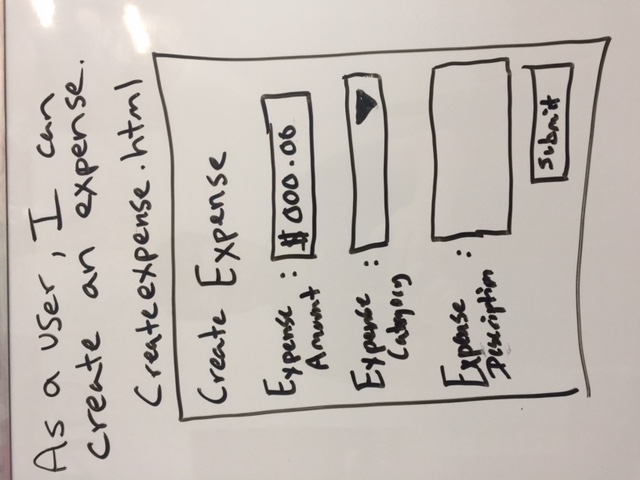 As a user, I can
create an expense.
Createexpense.html
Create Expense
Expense
Amount : $ 000.00
Expense
Category :
Expense
Description :
Submit